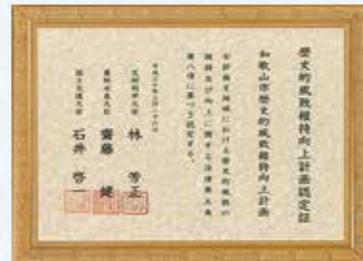 歴史的風致維持向上計画認定証
和歌山市歴史的風致維持向上計画
右計画を地域における歴史的風致の
維持及び向上に関する法律第五条
第八項に基づき認定する。
文部科学大臣 林 芳正
農林水産大臣 齋藤 健
国土交通大臣 石井 啓一